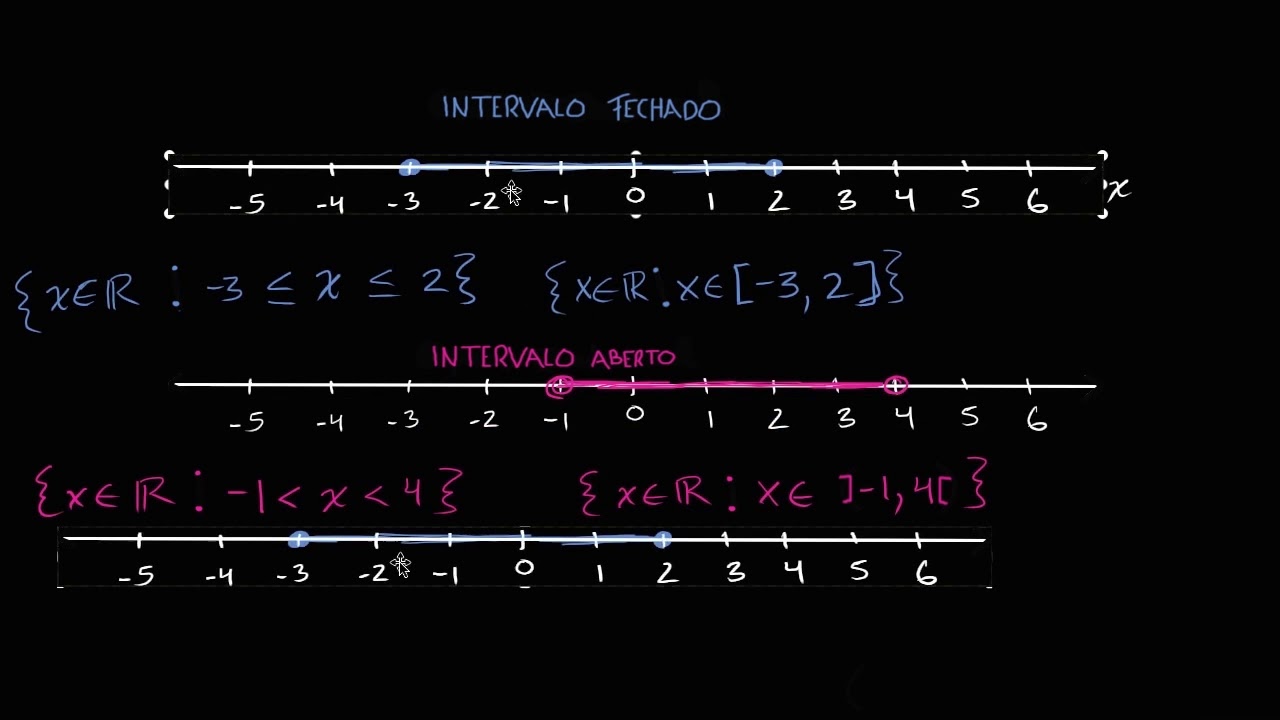 INTERVALO FECHADO
-5 -4 -3 -2 -1 0 1 2 3 4 5 6 x
{x∈ℝ : -3 ≤ x ≤ 2} {x∈ℝ : x∈[-3, 2]}
INTERVALO ABERTO
-5 -4 -3 -2 -1 0 1 2 3 4 5 6
{x∈ℝ : -1 < x < 4} {x∈ℝ : x∈ ]-1, 4[ }
-5 -4 -3 -2 -1 0 1 2 3 4 5 6